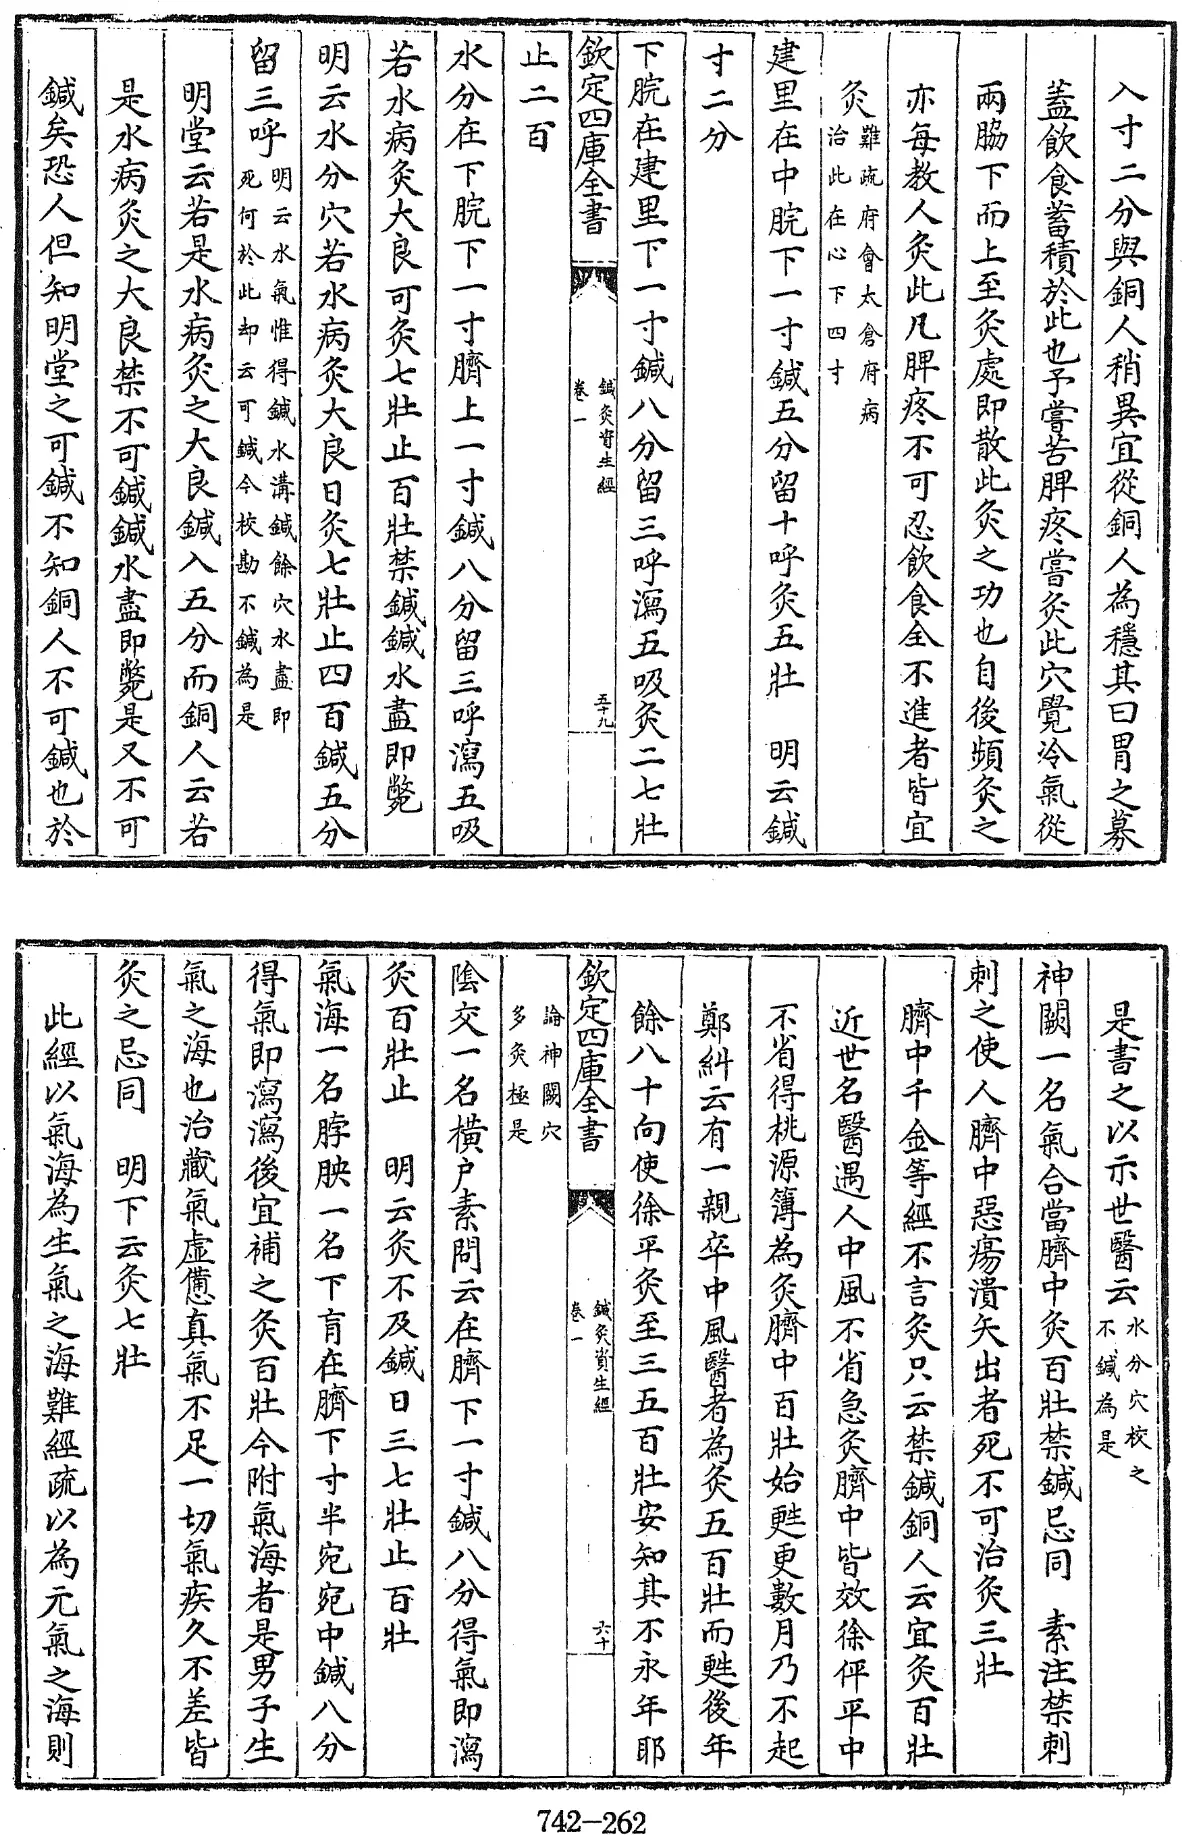 入寸二分與銅人稍異宜從銅人為穩其曰胃之募
蓋飲食蓄積於此也予嘗苦脾疼嘗灸此穴覺冷氣從
兩脇下而上至灸處即散此灸之功也自後頻灸之
亦每教人灸此凡脾疼不可忍飲食全不進者皆宜
灸難疏府會太倉府病
治此在心下四寸
建里在中脘下一寸鍼五分留十呼灸五壯 明云鍼
寸二分
下脘在建里下一寸鍼八分留三呼瀉五吸灸二七壯
欽定四庫全書
鍼灸資生經
卷一
五十九
止二百
水分在下脘下一寸臍上一寸鍼八分留三呼瀉五吸
若水病灸大良可灸七壯止百壯禁鍼鍼水盡即斃
明云水分穴若水病灸大良日灸七壯止四百鍼五分
留三呼明云水氣惟得鍼水溝鍼餘穴水盡即
死何於此却云可鍼今校勘不鍼為是
明堂云若是水病灸之大良鍼入五分而銅人云若
是水病灸之大良禁不可鍼鍼水盡即斃是又不可
鍼矣恐人但知明堂之可鍼不知銅人不可鍼也於
是書之以示世醫云水分穴校之
不鍼為是
神闕一名氣合當臍中灸百壯禁鍼忌同 素注禁刺
刺之使人臍中惡瘍潰矢出者死不可治灸三壯
臍中千金等經不言灸只云禁鍼銅人云宜灸百壯
近世名醫遇人中風不省急灸臍中皆效徐伻平中
不省得桃源簿為灸臍中百壯始甦更數月乃不起
鄭糾云有一親卒中風醫者為灸五百壯而甦後年
餘八十向使徐平灸至三五百壯安知其不永年耶
欽定四庫全書
鍼灸資生經
卷一
六十
論神闕穴
多灸極是
陰交一名橫户素問云在臍下一寸鍼八分得氣即瀉
灸百壯止 明云灸不及鍼日三七壯止百壯
氣海一名脖胦一名下肓在臍下寸半宛宛中鍼八分
得氣即瀉瀉後宜補之灸百壯今附氣海者是男子生
氣之海也治藏氣虛憊真氣不足一切氣疾久不差皆
灸之忌同 明下云灸七壯
此經以氣海為生氣之海難經疏以為元氣之海則
742-262